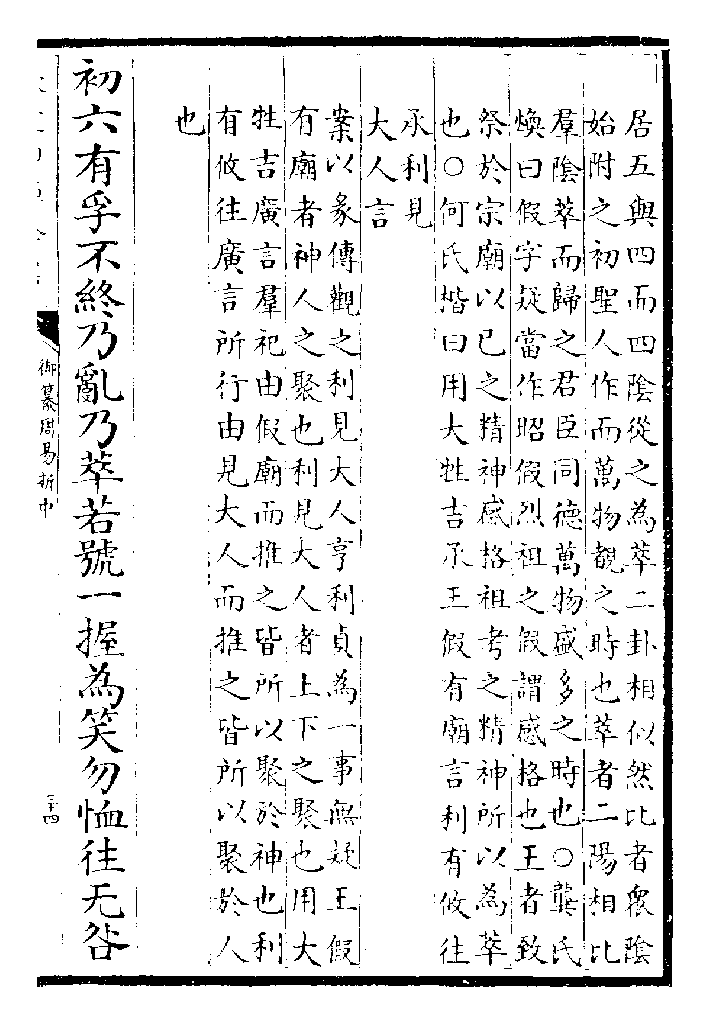 居五與四而四陰從之為萃二卦相似然比者衆陰
始附之初聖人作而萬物覩之時也萃者二陽相比
羣陰萃而歸之君臣同德萬物盛多之時也○龔氏
煥曰假字疑當作昭假烈祖之假謂感格也王者致
祭於宗廟以已之精神感格祖考之精神所以為萃
也○何氏楷曰用大牲吉承王假有廟言利有攸往
承利見
大人言
案以彖傳觀之利見大人亨利貞為一事無疑王假
有廟者神人之聚也利見大人者上下之聚也用大
牲吉廣言羣祀由假廟而推之皆所以聚於神也利
有攸往廣言所行由見大人而推之皆所以聚於人
也
初六有孚不終乃亂乃萃若號一握為笑勿恤往无咎
御纂周易折中
二十四